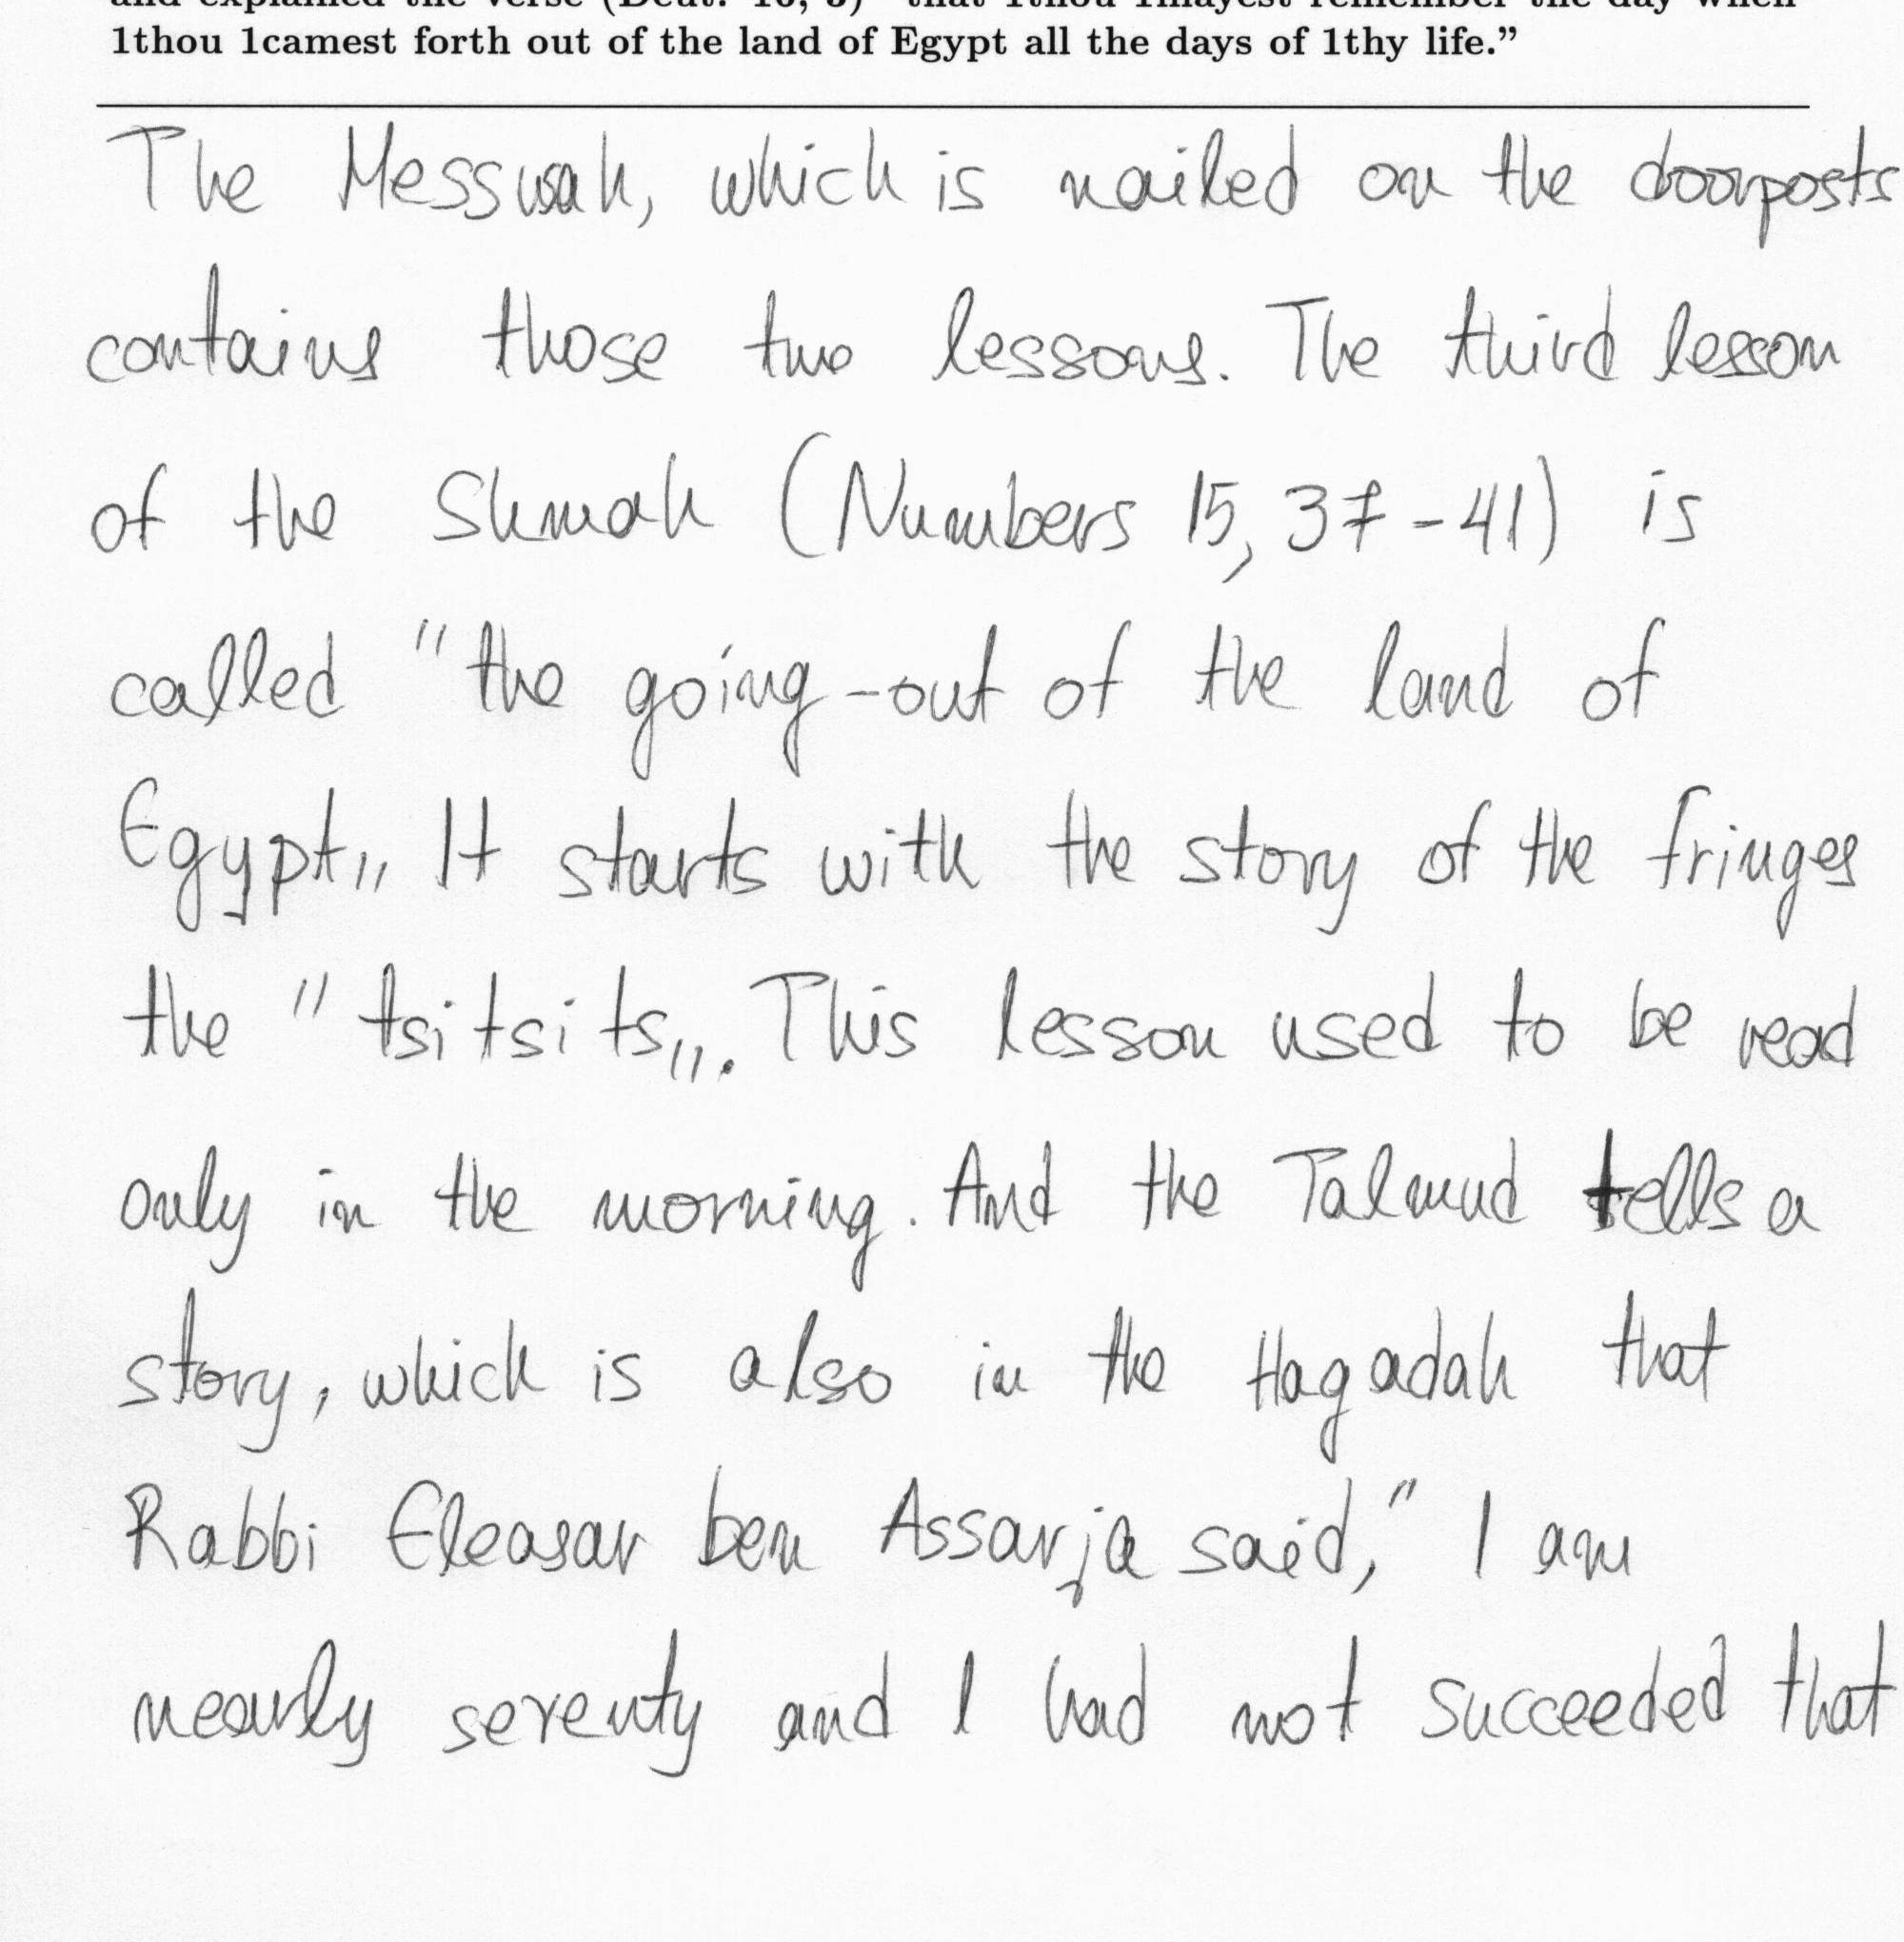 1thou 1camest forth out of the land of Egypt all the days of 1thy life.”
The Messusah, which is nailed on the doorposts
contains those two lessons. The third lesson
of the Shmah (Numbers 15, 37-41) is
called "the going-out of the land of
Egypt„ It starts with the story of the fringes
the "tsitsits„. This lesson used to be read
only in the morning. And the Talmud tells a
story, which is also in the Hagadah that
Rabbi Eleasar ben Assarja said," I am
nearly seventy and I had not succeeded that